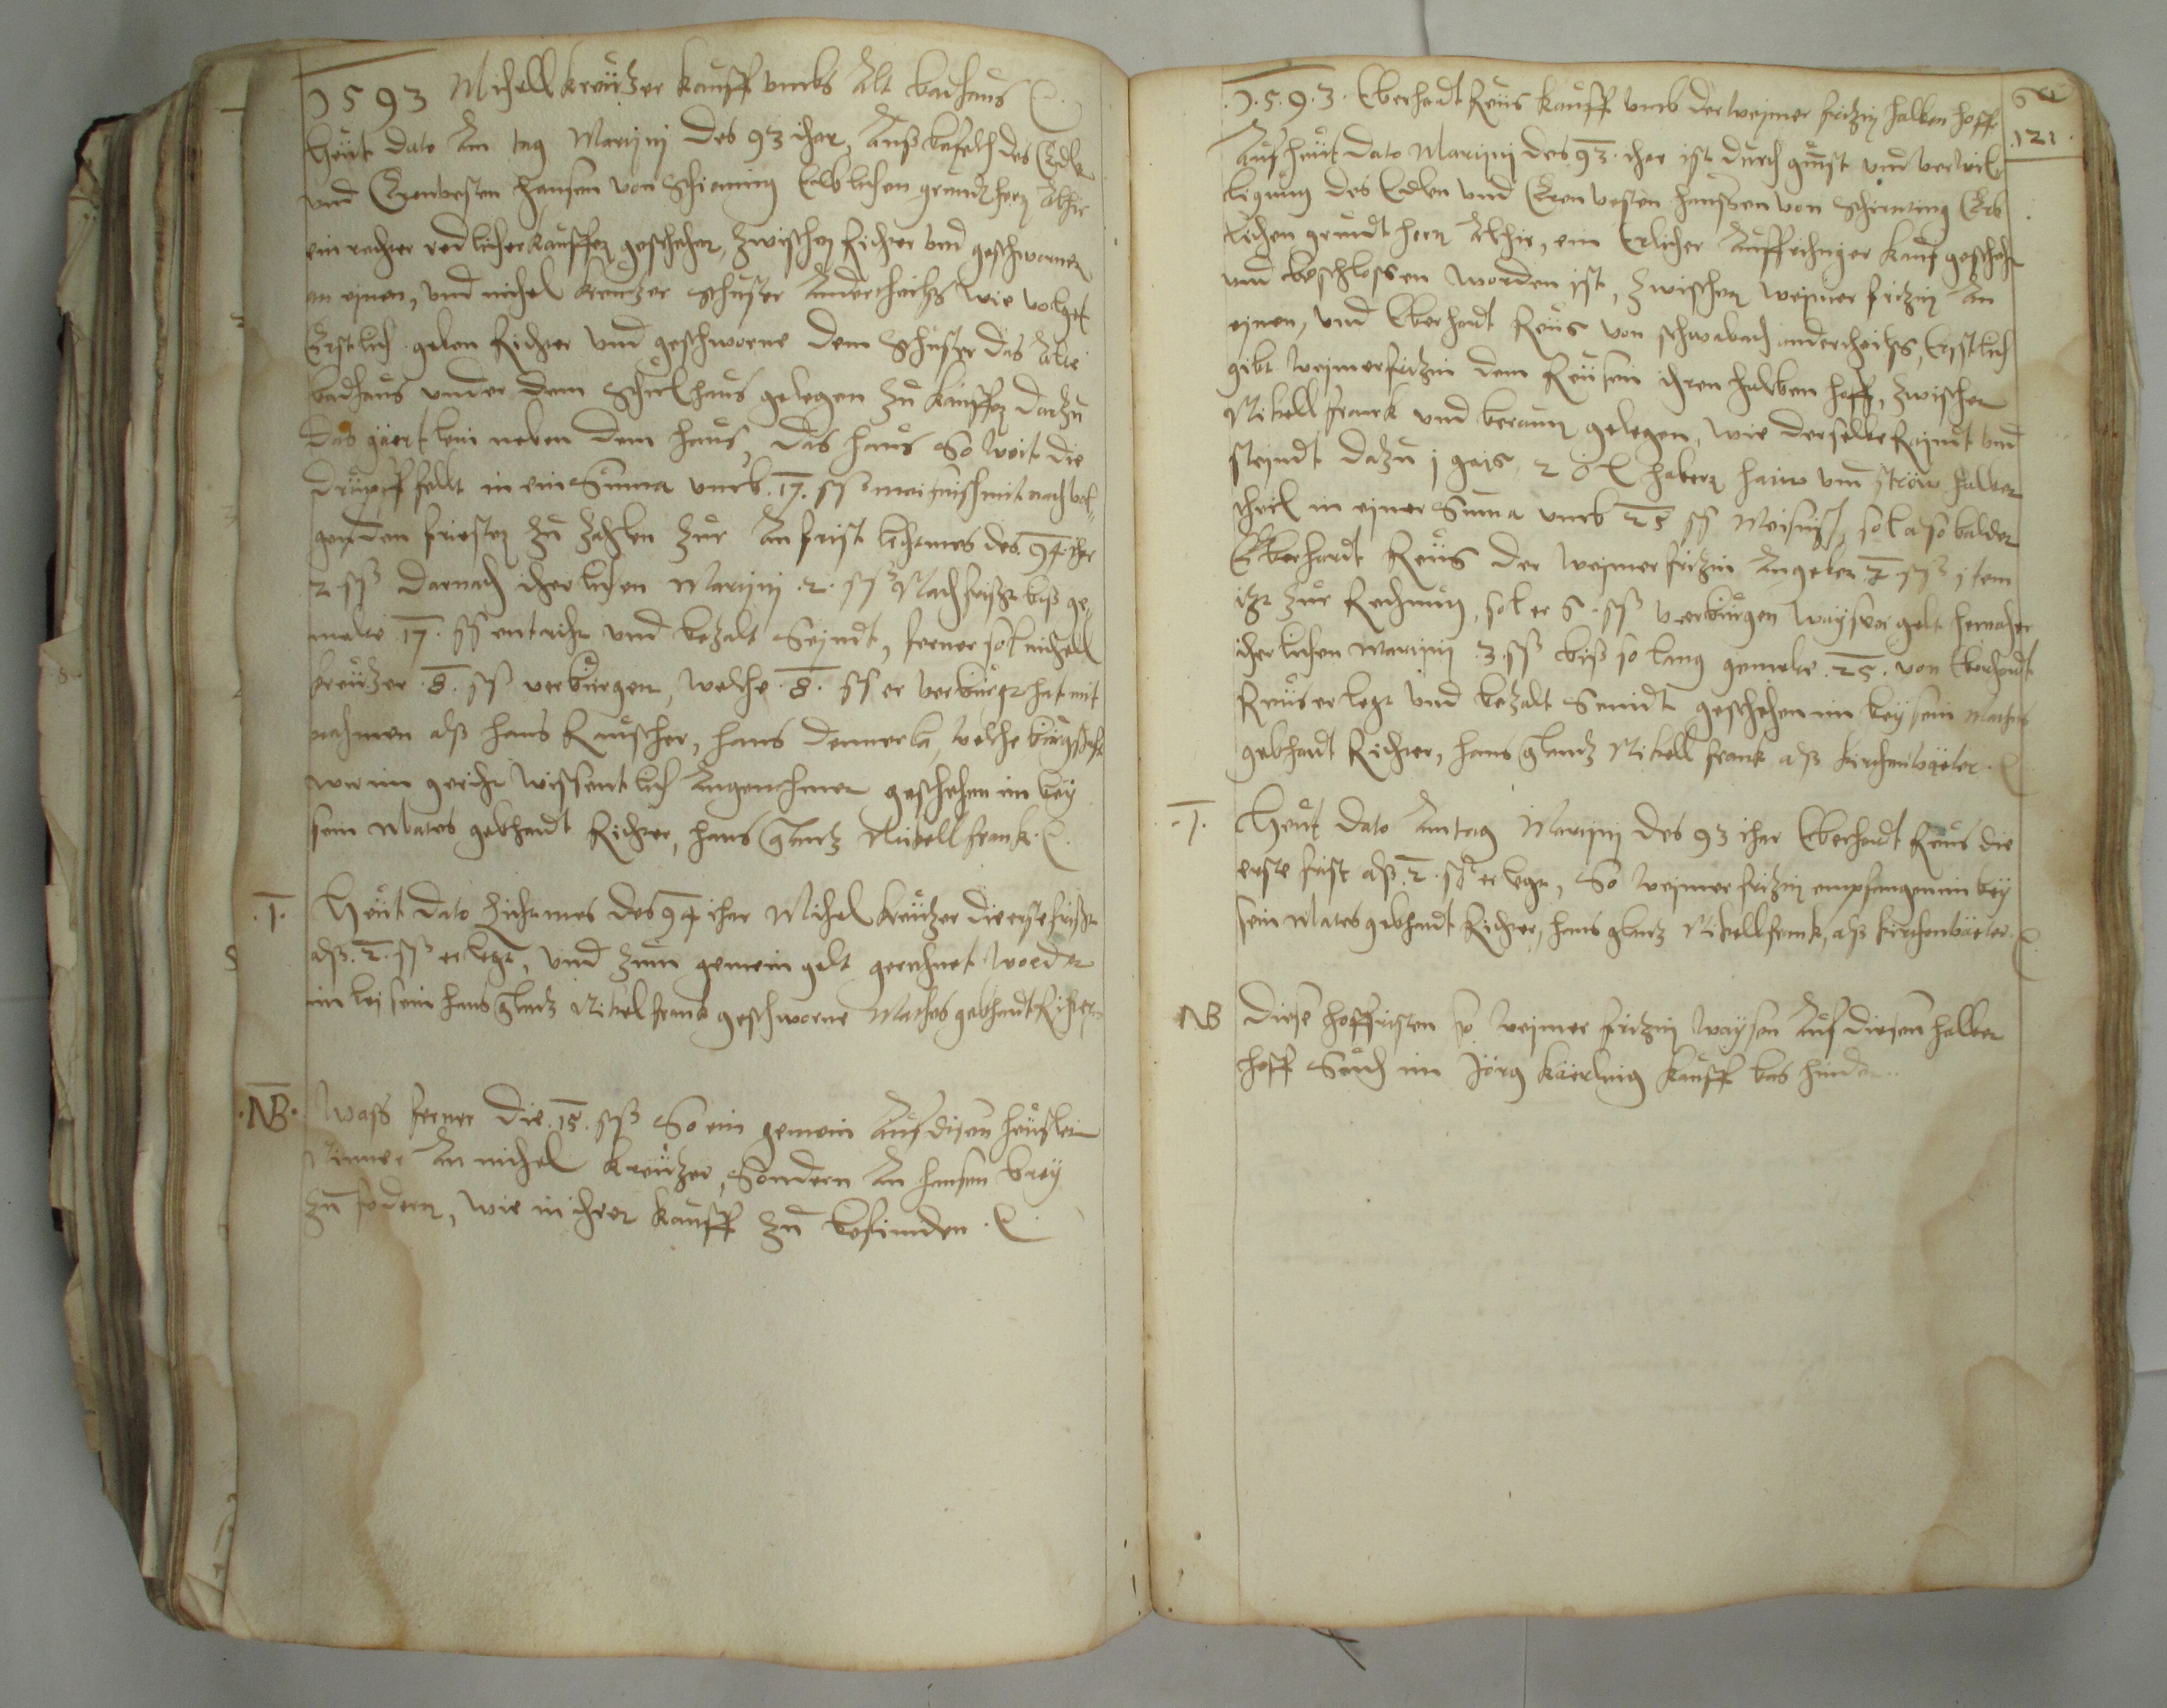 1593 Michell Kreützer kauff umbs Alt badhaus
Heut dato Am tag Martinj des 93 ihar, Auß befelch des Edln
und Ehrnvesten Hansen von Schirnting Erblichen grundthern Alhie
ein rechter redlicher kauffen geschehen, zwischen Richter und geschwornen
an einen, und michel Kreutzer Schuster Anderstheihls wie volget
Erstlich geben Richter und geschworne dem Schuster das Alte
badhaus under dem Schulhaus gelegen zu kauffen darzu
das gertlein neben dem haus, das haus So weit die
drupff felt in ein Summa umb .17. ßß meisnisch mit nachvol¬
genden fristen zu zahlen zur Anfrist Lichtmes des 94 ihar
2 ßß darnach iherlichen Martinj .2. ßß Nachfrist biß ge¬
melte 17. ßß entricht und bezalt Seindt, ferner sol michell
Kreützer .8. ßß verburgen, welche .8. ßß er verburgt hat mit
nahmen alß hans Rauscher, hans , welche burgschaft
wir im gericht wissentlich Angenohmen geschehen im bey
sein Mates gebhardt Richter, hans glantz Nickell frank.
.1. Heut dato Lichtmes des 94 ihar Michel Kreutzer die erste frist
alß .2. ßß erlegt, und zum gemein gelt gerechnet worden
im beisein hans glantz Nickel frank geschworne Mathes gebhardt Richter
.NB. Waß ferner die .15. ßß So ein gemein Auf disem heuslein
Nimer An michel Kreutzer, Sondern An hansen brey
zu fodern, wie in ihrer kauff zu befinden.
.1.5.9.3. Eberhardt Reus kauff umb der weimer fritzin halben hoff
121
Auf heut dato Martinj des 93. ihar ist durch gunst und verwil
ligung des Edlen und Ehrnvesten hanssen von Schirnting Erb
lichen grundthern Alhie, ein Erlicher Auffrichtiger kauf geschehen
und beschlossen worden ist, zwischen weimer fritzin An
einen, und Eberhardt Reus von schwabach anderstheihls, Erstlich
gibt weimerfritzin dem Reusen ihren halben hoff, zwischen
Nickell frank und gelegen, wie derselbe Raindt und
steindt dazu j gais, 2 habern haiw und ströw halben
theil in einer Summa umb 25 ßß Meisnisch, sol also balde
Eberhardt Reus der weimerfritzin Angeben .2. ßß item
itzt zur Rechnung, sol er 5. ßß verburgen waisen gelt hernacher
iherlichen Martinj .3. ßß biß so lang gemelte .25. von Eberhardt
Reus erlegt und bezalt Seindt geschehen im beysein Mathes
gebhardt Richter, hans glantz Nickell frank alß kirchenväter.
.1. Heut dato Am tag Martinj des 93 ihar Eberhardt Reus die
erste frist alß .2. ßß erlegt, So weimer fritzin empfangen im bey
sein Mates gebhardt Richter, hans glantz Nickell frank, alß kirchenväter.
NB Diese hoffristen so weimer fritzin waysen Auf diesem halben
hoff Such im Jörg kauff baß hinden..